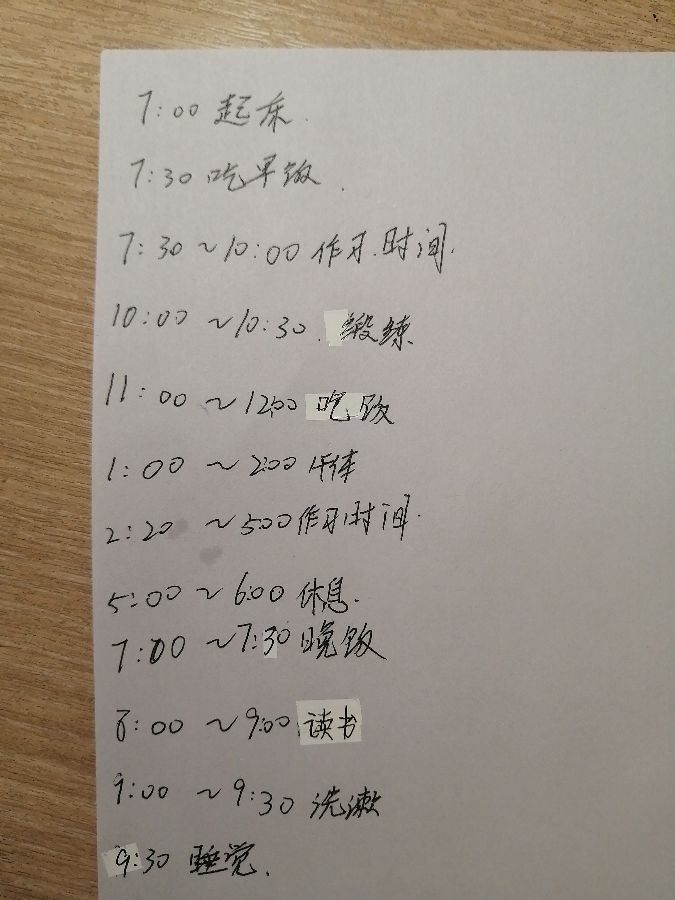 7:00 起床.
7:30 吃早饭.
7:30~10:00 作习.时间.
10:00~10:30.锻练
11:00~12:00 吃饭
1:00~2:00 午休
2:20~5:00 作习时间.
5:00~6:00 休息.
7:00~7:30 晚饭
8:00~9:00 读书
9:00~9:30 洗漱
9:30 睡觉.